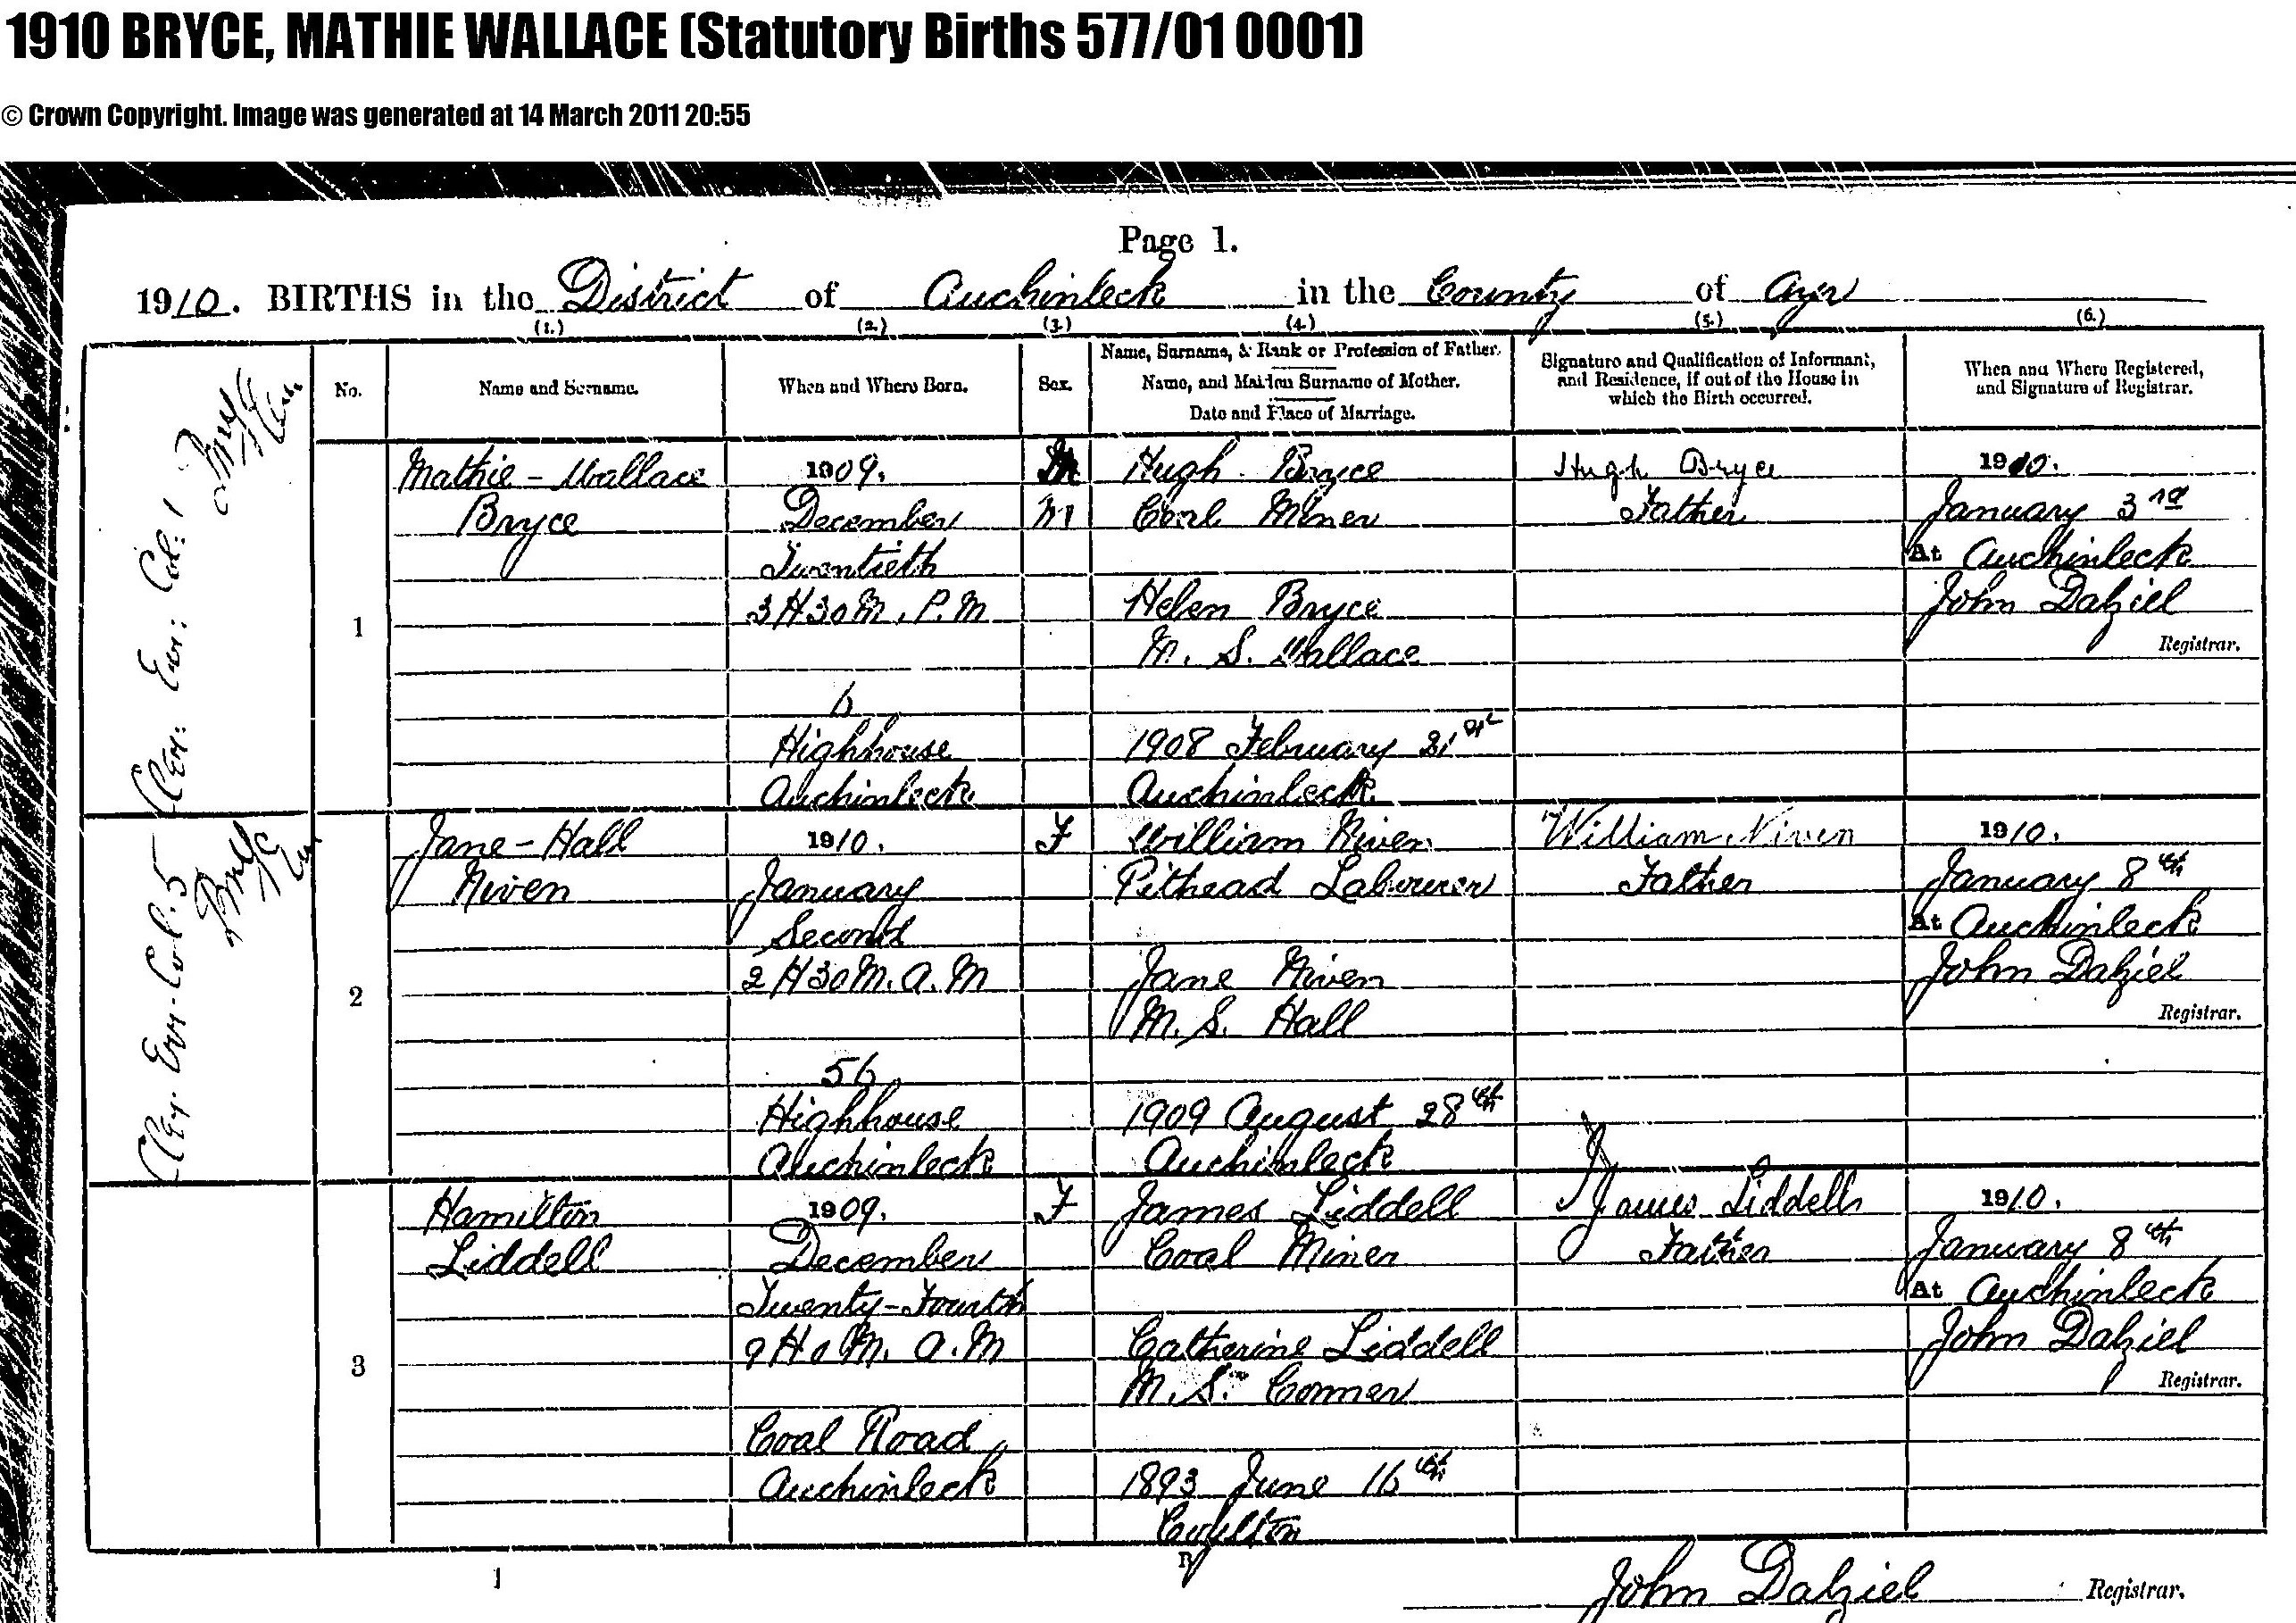 1910 BRYCE, MATHIE WALLACE (Statutory Births 577/01 0001)
© Crown Copyright. Image was generated at 14 March 2011 20:55
Page 1.
1910. BIRTHS in the District of Auchinleck in the County of Ayr
(1.) (2.) (3.) (4.) (5.) (6.)
No.
Name and Surname.
When and Where Born.
Sex.
Name, Surname, & Rank or Profession of Father.
Name, and Maiden Surname of Mother.
Date and Place of Marriage.
Signature and Qualification of Informant,
and Residence, if out of the House in
which the Birth occurred.
When and Where Registered,
and Signature of Registrar.
Col: 1
1
Mathie - Wallace
Bryce
1909.
December
Twentieth
3 H 30 M. P.M
6
Highhouse
Auchinleck
M
M
Hugh Bryce
Coal Miner
Helen Bryce
M. S. Wallace
1908 February 21st
Auchinleck
Hugh Bryce
Father
1910.
January 3rd
At Auchinleck
John Dalziel
Registrar.
Col. 5
2
Jane - Hall
Niven
1910.
January
Second
2 H 30 M. A.M
56
Highhouse
Auchinleck
F
William Niven
Pithead Labourer
Jane Niven
M. S. Hall
1909 August 28th
Auchinleck
William Niven
Father
1910.
January 8th
At Auchinleck
John Dalziel
Registrar.
3
Hamilton
Liddell
1909.
December
Twenty-Fourth
9 H 0 M. A.M
Coal Road
Auchinleck
F
James Liddell
Coal Miner
Catherine Liddell
M. S. Conner
1893 June 16th
Coylton
James Liddell
Father
1910.
January 8th
At Auchinleck
John Dalziel
Registrar.
1
B
John Dalziel Registrar.